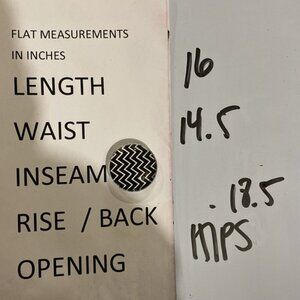 FLAT MEASUREMENTS
IN INCHES
LENGTH 16
WAIST 14.5
INSEAM
RISE / BACK 18.5
OPENING MPS